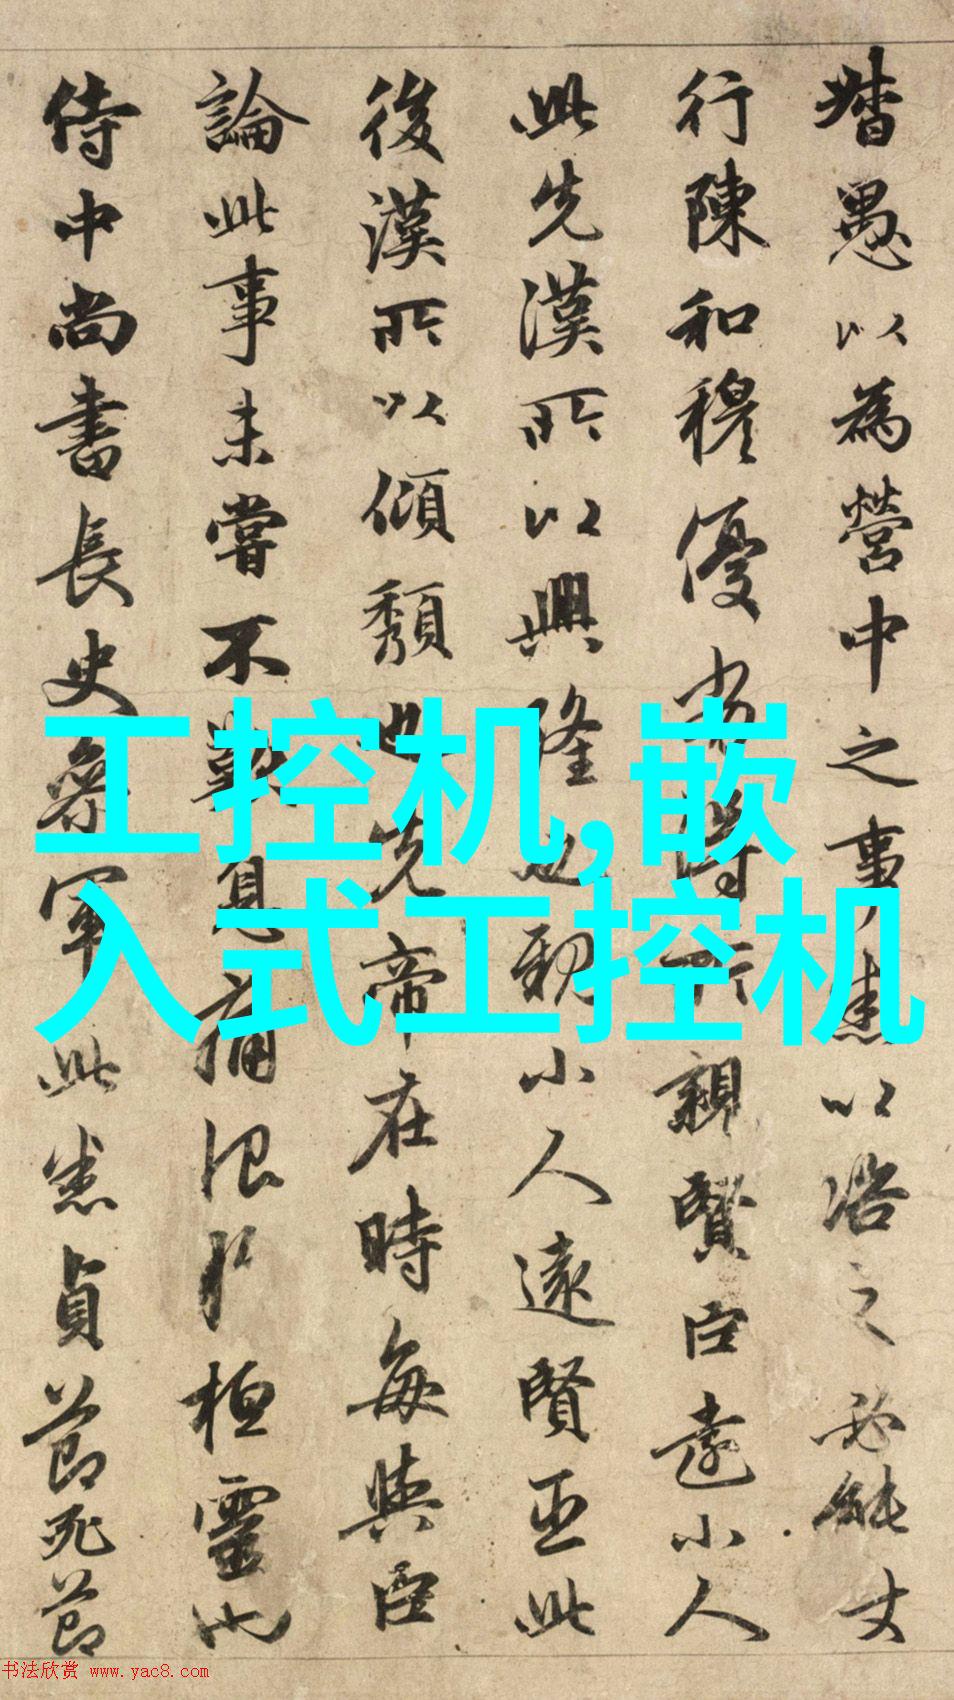 督愚以為營中之事悉以咨之必能使
行陳和穆優劣得所親賢臣遠小人
此先漢所以興隆也親小人遠賢臣此
後漢所以傾頹也先帝在時每與臣
論此事未嘗不歎息痛恨於桓靈也
侍中尚書長史參軍此悉貞節死節
工控机,嵌
入式工控机
书法欣赏 www.yac8.com